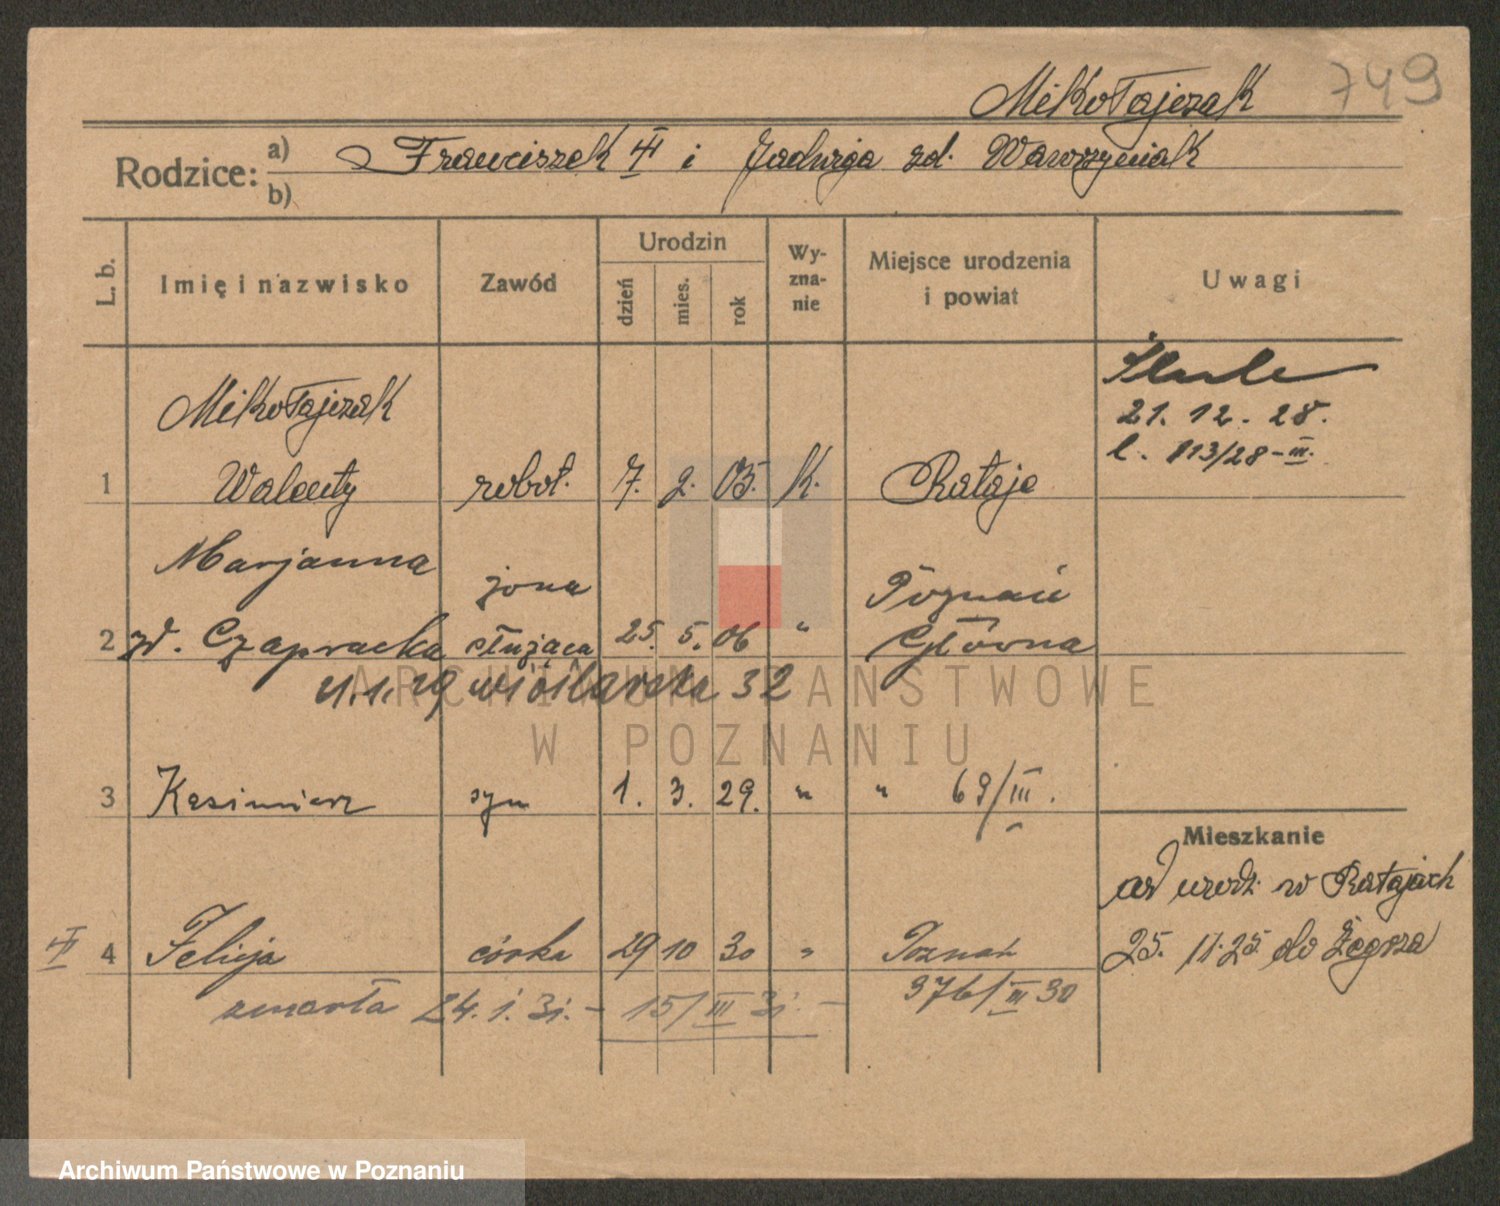 Mikołajczak 749
Rodzice: a) Franciszek i Jadwiga zd. Wawrzyniak
b)
L. b. Imię i nazwisko Zawód Urodzin dzień mies. rok Wyznanie Miejsce urodzenia i powiat Uwagi
Mikołajczak
21. 12. 28.
l. 113/28-III.
1 Walenty robot. 7. 2. 05. K. Rataje
Marjanna żona Poznań
2 zd. Czapracka służąca 25. 5. 06 " Główna
4.1.29 32
3 Kazimierz syn 1. 3. 29. " " 69/III.
Mieszkanie
od urodz. w Ratajach
4 Felicja córka 29 10 30 " Poznań
25. 11. 25 do Żegrza
zmarła 24. 1. 31. - 15/III 31. - 376/III 30
ARCHIWUM PAŃSTWOWE
W POZNANIU
Archiwum Państwowe w Poznaniu